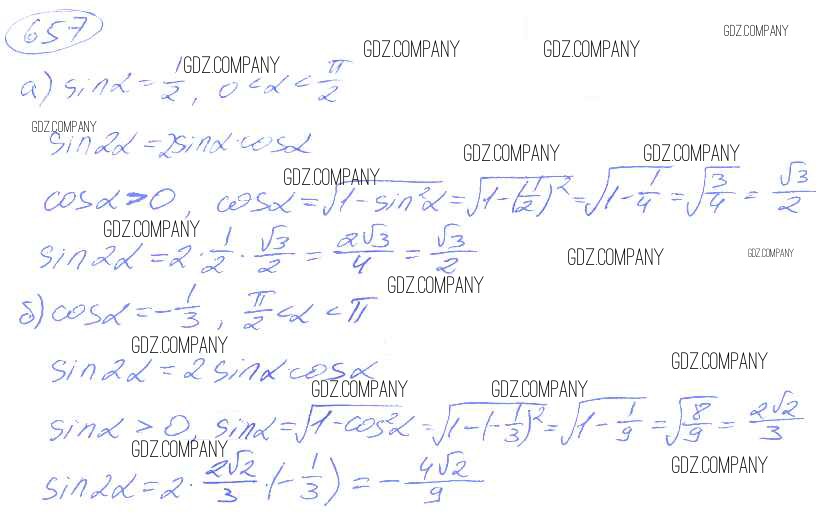 657
GDZ.COMPANY GDZ.COMPANY GDZ.COMPANY GDZ.COMPANY
а) sinα = 1/2, 0 < α < π/2
GDZ.COMPANY
sin2α = 2sinα·cosα
GDZ.COMPANY GDZ.COMPANY GDZ.COMPANY
cosα > 0, cosα = √(1 - sin²α) = √(1 - (1/2)²) = √(1 - 1/4) = √(3/4) = √3/2
GDZ.COMPANY
sin2α = 2 · 1/2 · √3/2 = 2√3/4 = √3/2
GDZ.COMPANY GDZ.COMPANY
GDZ.COMPANY
б) cosα = -1/3, π/2 < α < π
GDZ.COMPANY
sin2α = 2 sinα cosα
GDZ.COMPANY
GDZ.COMPANY GDZ.COMPANY
sinα > 0, sinα = √(1 - cos²α) = √(1 - (-1/3)²) = √(1 - 1/9) = √(8/9) = 2√2/3
GDZ.COMPANY
sin2α = 2 · 2√2/3 · (-1/3) = -4√2/9
GDZ.COMPANY